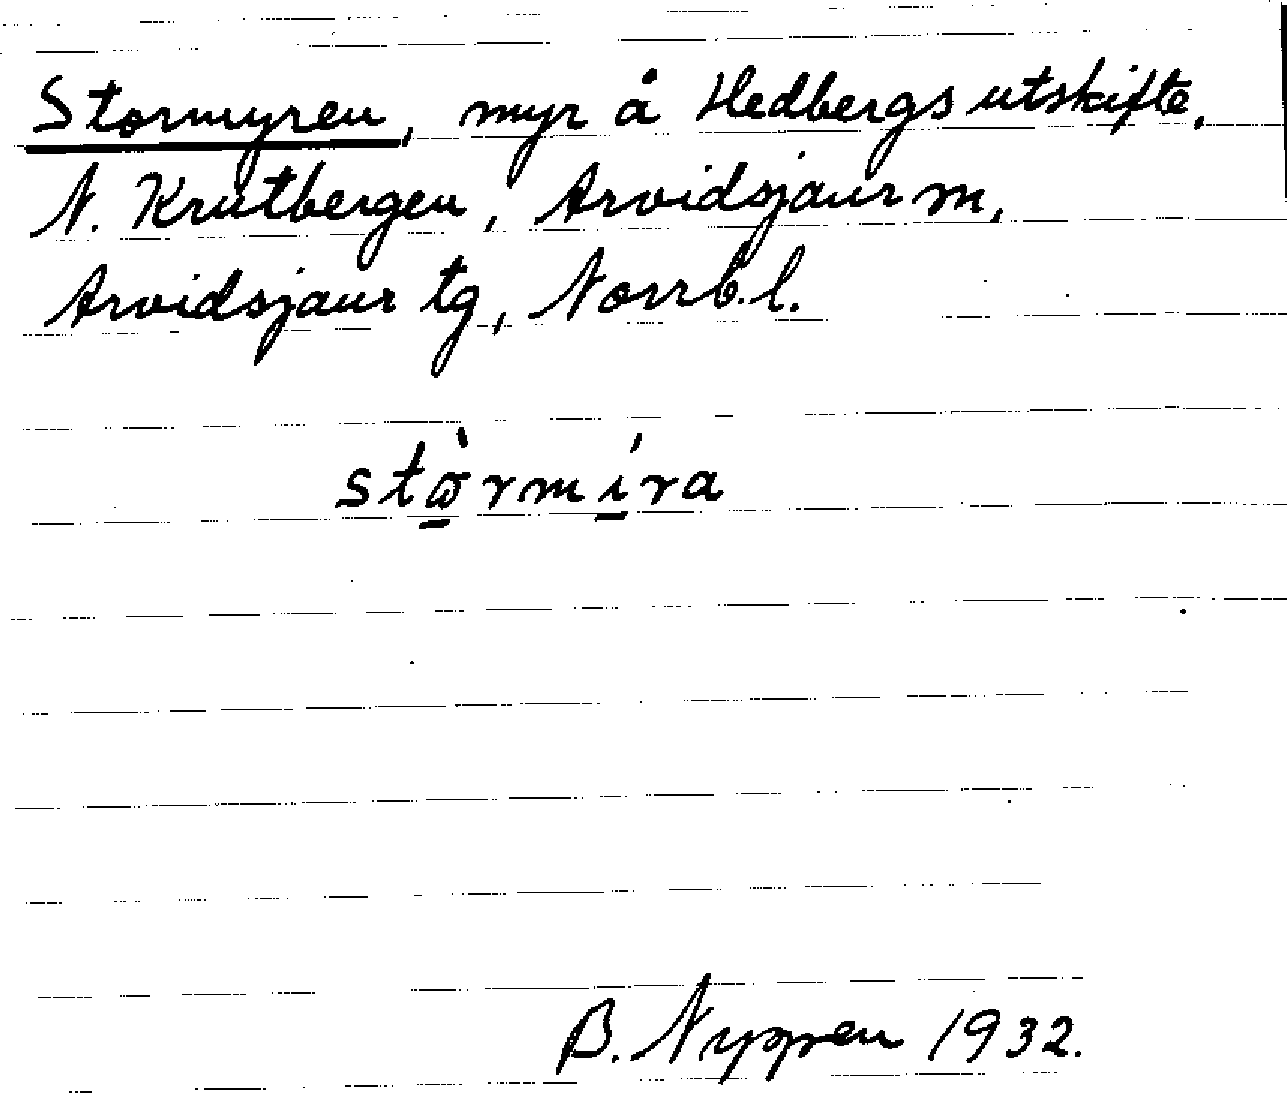 Stormyren, myr å Hedbergs utskifte,
N. Krutbergen, Arvidsjaur sn,
Arvidsjaur tg, Norrb. l.
stὼ̱rmí̱ra
B. Nygren 1932.